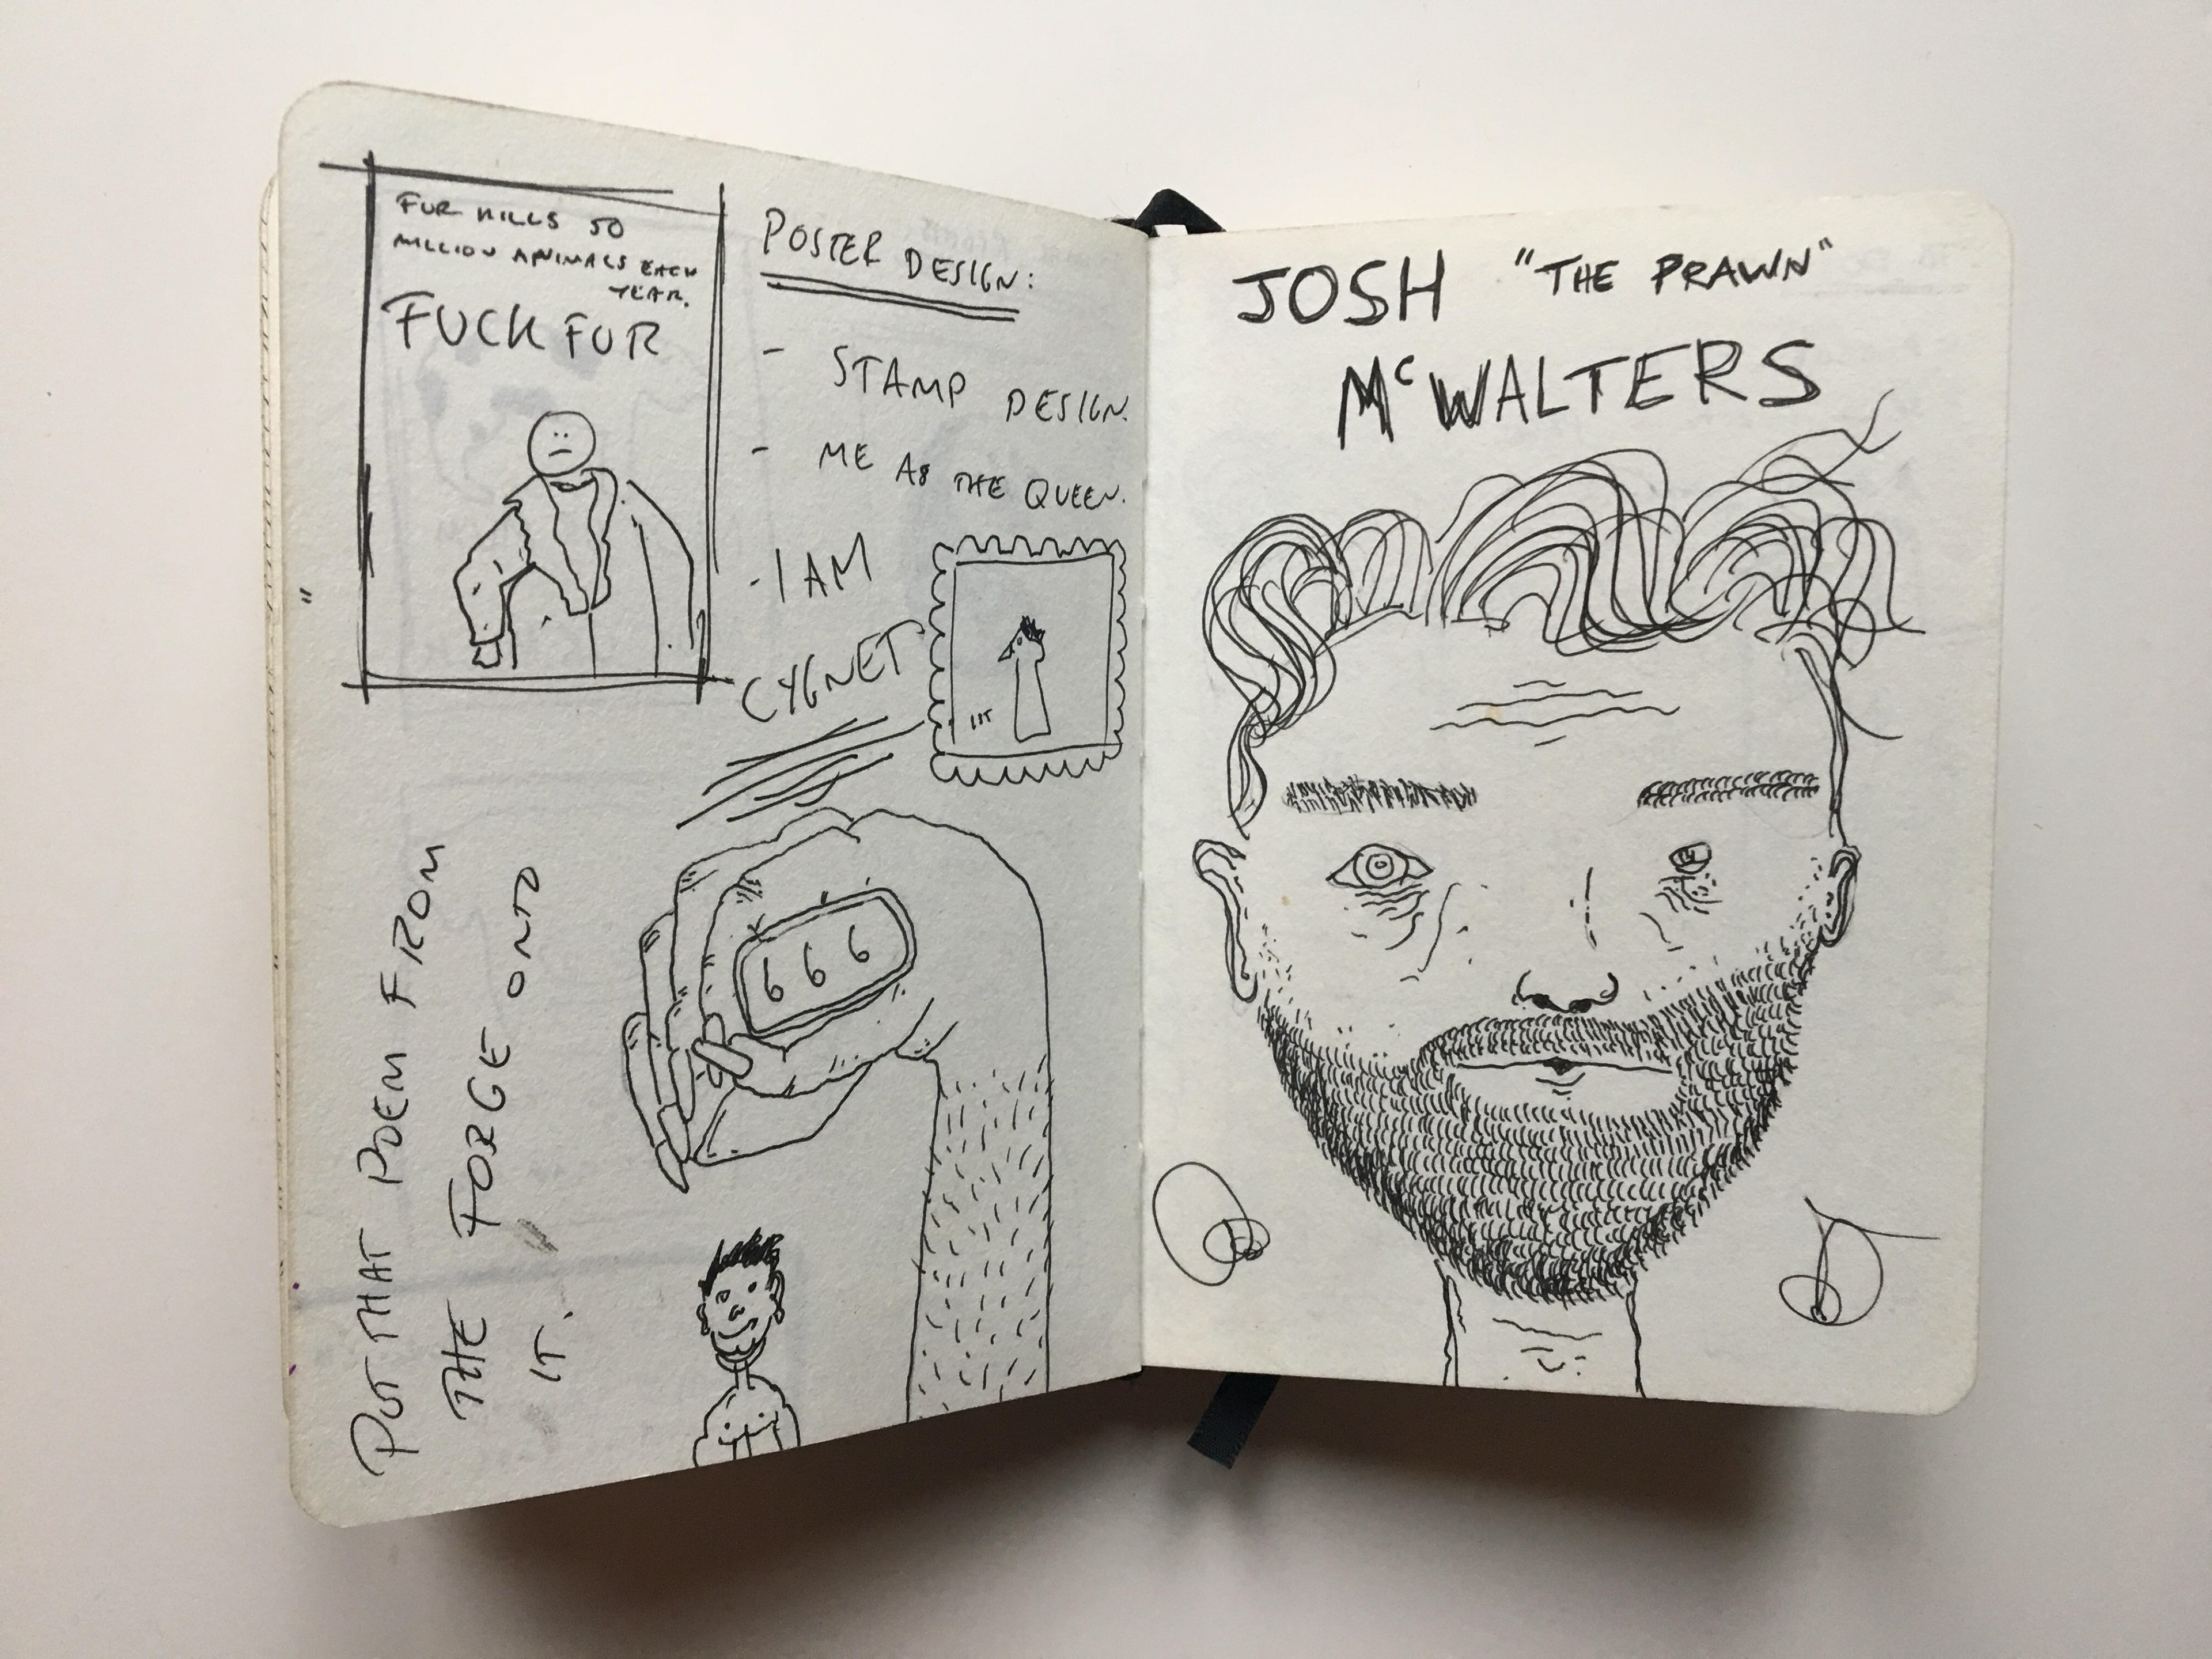 FUR KILLS 50
MILLION ANIMALS EACH
YEAR.
FUCK FUR
POSTER DESIGN:
- STAMP DESIGN.
- ME AS THE QUEEN.
- I AM
CYGNET
1ST
666
PUT THAT POEM FROM
THE FORGE ONTO
IT.
JOSH "THE PRAWN"
McWALTERS